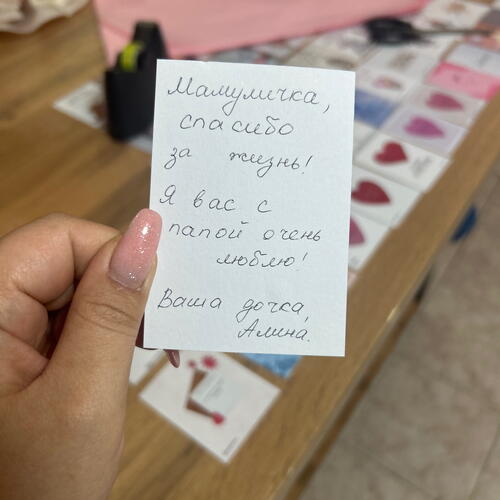 Мамуличка,
спасибо
за жизнь!
Я вас с
папой очень
люблю!
Ваша дочка,
Алина.